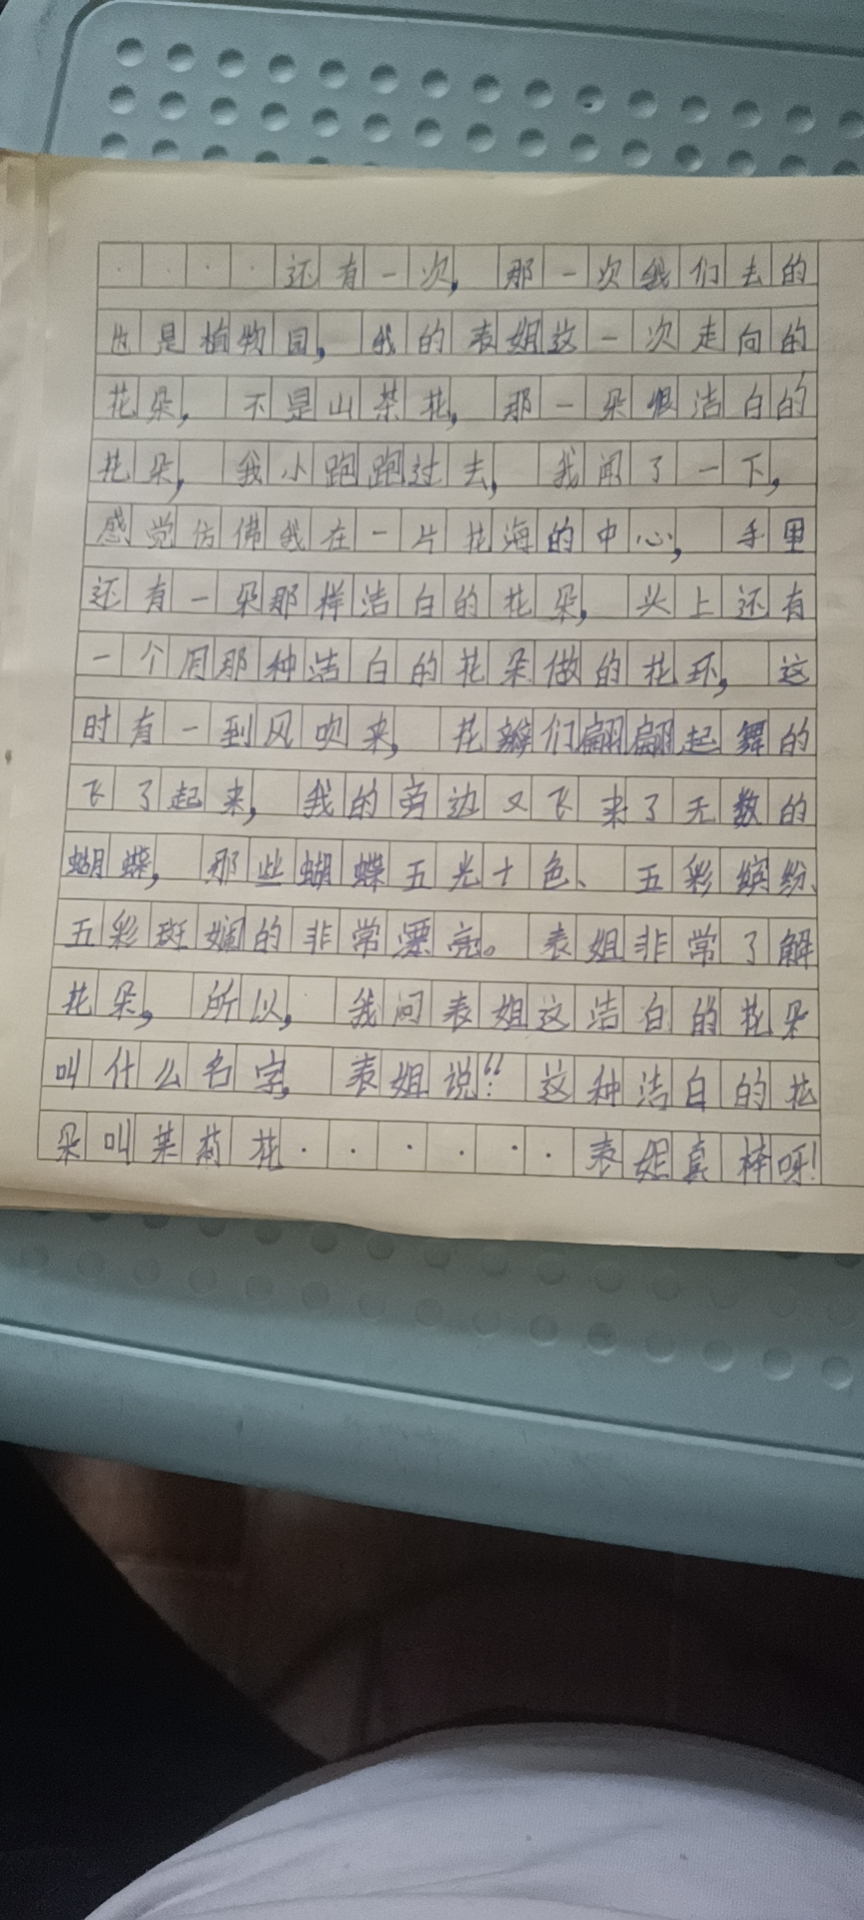 ····还有一次，那一次我们去的
也是植物园，我的表姐这一次走向的
花朵，不是山茶花，那一朵很洁白的
花朵，我小跑跑过去，我闻了一下，
感觉仿佛我在一片花海的中心，手里
还有一朵那样洁白的花朵，头上还有
一个用那种洁白的花朵做的花环，这
时有一到风吹来，花瓣们翩翩起舞的
飞了起来，我的旁边又飞来了无数的
蝴蝶，那些蝴蝶五光十色、五彩缤纷、
五彩斑斓的非常漂亮。表姐非常了解
花朵，所以，我问表姐这洁白的花朵
叫什么名字，表姐说：“这种洁白的花
朵叫茉莉花······表姐真棒呀！